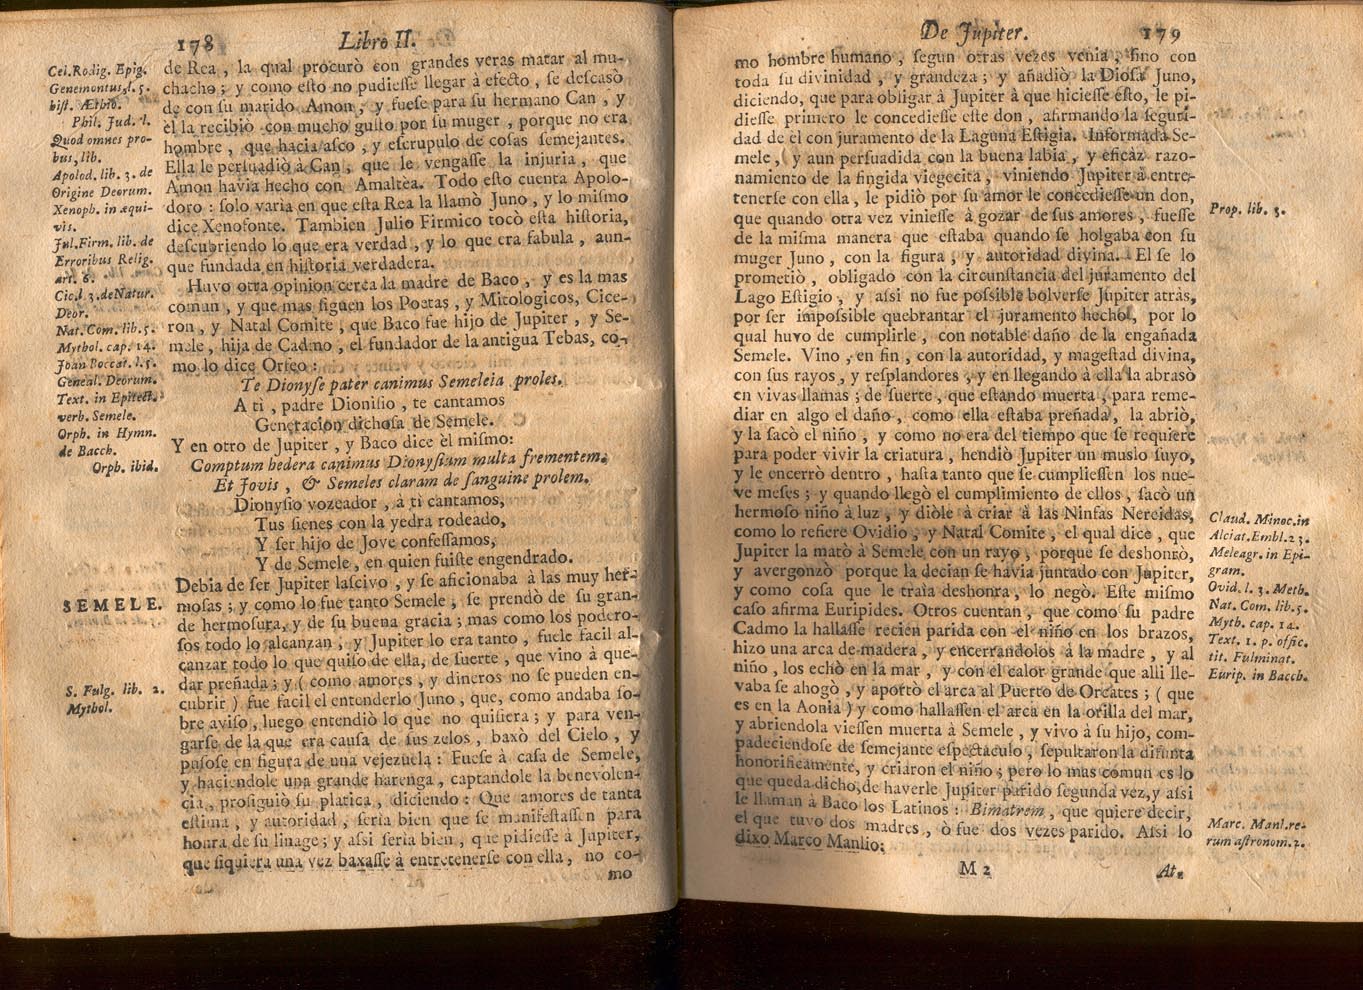 178 Libro II.
Cel. Rodig. Epig.
Genemontus, l. 5.
hist. Æthio.
Phil. Jud. l.
Quod omnes pro-
bus, lib.
Apolod. lib. 3. de
Origine Deorum.
Xenoph. in æqui-
vis.
Jul. Firm. lib. de
Erroribus Relig.
art. 6.
Cic. l. 3. de Natur.
Deor.
Nat. Com. lib. 5.
Mythol. cap. 14.
Joan Boccat. l. 5.
Geneal. Deorum.
Text. in Epitect.
verb. Semele.
Orph. in Hymn.
de Bacch.
Orph. ibid.
SEMELE.
S. Fulg. lib. 2.
Mythol.
de Rea, la qual procurò con grandes veras matar al mu-
chacho; y como eſto no pudieſſe llegar à efecto, ſe deſcasò
de con ſu marido Amon, y fueſe para ſu hermano Can, y
èl la recibiò con mucho guſto por ſu muger, porque no era
hombre, que hacia aſco, y eſcrupulo de coſas ſemejantes.
Ella le perſuadiò à Can, que le vengaſſe la injuria, que
Amon havia hecho con Amaltèa. Todo eſto cuenta Apolo-
doro: ſolo varia en que eſta Rea la llamò Juno, y lo miſmo
dice Xenofonte. Tambien Julio Firmico tocò eſta hiſtoria,
deſcubriendo lo que era verdad, y lo que era fabula, aun-
que fundada en hiſtoria verdadera.
Huvo otra opinion cerca la madre de Baco, y es la mas
comun, y que mas ſiguen los Poetas, y Mitologicos, Cice-
ron, y Natal Comite, que Baco fue hijo de Jupiter, y Se-
mele, hija de Cadmo, el fundador de la antigua Tebas, co-
mo lo dice Orfeo:
Te Dionyſe pater canimus Semeleia proles.
A ti, padre Dioniſio, te cantamos
Generacion dichoſa de Semele.
Y en otro de Jupiter, y Baco dice èl miſmo:
Comptum hedera canimus Dionyſium multa frementem.
Et Jovis, & Semeles claram de ſanguine prolem.
Dionyſio vozeador, à ti cantamos,
Tus ſienes con la yedra rodeado,
Y ſer hijo de Jove confeſſamos,
Y de Semele, en quien fuiſte engendrado.
Debia de ſer Jupiter laſcivo, y ſe aficionaba à las muy her-
moſas; y como lo fue tanto Semele, ſe prendò de ſu gran-
de hermoſura, y de ſu buena gracia; mas como los podero-
ſos todo lo alcanzan, y Jupiter lo era tanto, fuele facil al-
canzar todo lo que quiſo de ella, de ſuerte, que vino à que-
dar preñada; y ( como amores, y dineros no ſe pueden en-
cubrir ) fue facil el entenderlo Juno, que, como andaba ſo-
bre aviſo, luego entendiò lo que no quiſiera; y para ven-
garſe de la que era cauſa de ſus zelos, baxò del Cielo, y
puſoſe en figura de una vejezuela: Fueſe à caſa de Semele,
y haciendole una grande harenga, captandole la benevolen-
cia, proſiguiò ſu platica, diciendo: Que amores de tanta
eſtima, y autoridad, ſeria bien que ſe manifeſtaſſen para
honra de ſu linage; y aſsi ſeria bien, que pidieſſe à Jupiter,
que ſiquiera una vez baxaſſe à entretenerſe con ella, no co-
mo
De Jupiter. 179
mo hombre humano, ſegun otras vezes venia, ſino con
toda ſu divinidad, y grandeza; y añadiò la Dioſa Juno,
diciendo, que para obligar à Jupiter à que hicieſſe eſto, le pi-
dieſſe primero le concedieſſe eſte don, afirmando la ſeguri-
dad de èl con juramento de la Laguna Eſtigia. Informada Se-
mele, y aun perſuadida con la buena labia, y eficàz razo-
namiento de la fingida viegecita, viniendo Jupiter à entre-
tenerſe con ella, le pidiò por ſu amor le concedieſſe un don,
que quando otra vez vinieſſe à gozar de ſus amores, fueſſe
de la miſma manera que eſtaba quando ſe holgaba con ſu
muger Juno, con la figura, y autoridad divina. El ſe lo
prometiò, obligado con la circunſtancia del juramento del
Lago Eſtigio, y aſsi no fue poſsible bolverſe Jupiter atràs,
por ſer impoſsible quebrantar el juramento hecho, por lo
qual huvo de cumplirle, con notable daño de la engañada
Semele. Vino, en fin, con la autoridad, y mageſtad divina,
con ſus rayos, y reſplandores, y en llegando à ella la abrasò
en vivas llamas; de ſuerte, que eſtando muerta, para reme-
diar en algo el daño, como ella eſtaba preñada, la abriò,
y la ſacò el niño, y como no era del tiempo que ſe requiere
para poder vivir la criatura, hendiò Jupiter un muslo ſuyo,
y le encerrò dentro, haſta tanto que ſe cumplieſſen los nue-
ve meſes; y quando llegò el cumplimiento de ellos, ſacò un
hermoſo niño à luz, y diòle à criar à las Ninfas Nereidas,
como lo refiere Ovidio, y Natal Comite, el qual dice, que
Jupiter la matò à Semele con un rayo, porque ſe deshonrò,
y avergonzò porque la decian ſe havia juntado con Jupiter,
y como coſa que le traìa deshonra, lo negò. Eſte miſmo
caſo afirma Euripides. Otros cuentan, que como ſu padre
Cadmo la hallaſſe recien parida con el niño en los brazos,
hizo una arca de madera, y encerrandolos à la madre, y al
niño, los echò en la mar, y con el calor grande que alli lle-
vaba ſe ahogò, y aportò el arca al Puerto de Oreates; ( que
es en la Aonia ) y como hallaſſen el arca en la orilla del mar,
y abriendola vieſſen muerta à Semele, y vivo à ſu hijo, com-
padeciendoſe de ſemejante eſpectàculo, ſepultaron la difunta
honorificamente, y criaron el niño; pero lo mas comun es lo
que queda dicho, de haverle Jupiter parido ſegunda vez, y aſsi
le llaman à Baco los Latinos: Bimatrem, que quiere decir,
el que tuvo dos madres, ò fue dos vezes parido. Aſsi lo
dixo Marco Manlio:
M 2 At-
Prop. lib. 3.
Claud. Minoc. in
Alciat. Embl. 23.
Meleagr. in Epi-
gram.
Ovid. l. 3. Meth.
Nat. Com. lib. 5.
Myth. cap. 14.
Text. 1. p. offic.
tit. Fulminat.
Eurip. in Bacch.
Marc. Manl. re-
rum aſtronom. 2.